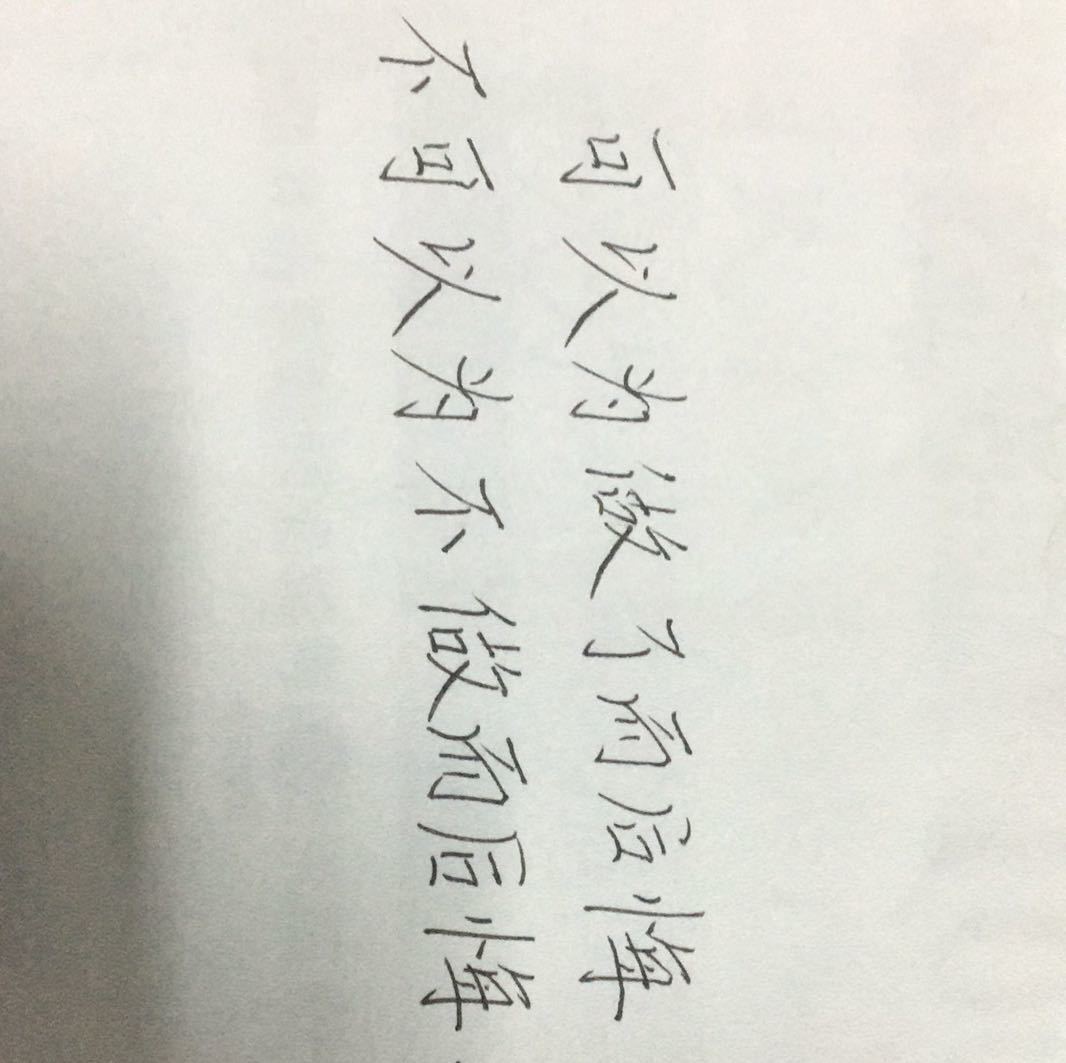 可以为做了而后悔
不可以为不做而后悔